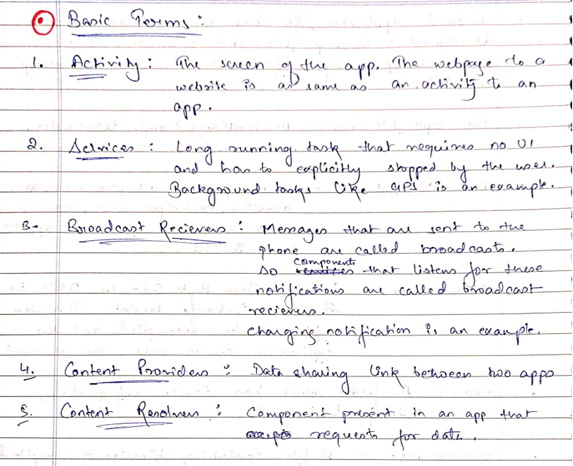 Basic Terms :
1. Activity : The screen of the app. The webpage to a
website is as same as an activity to an
app.
2. Services : Long running task that requires no UI
and has to explicitly stopped by the user.
Background tasks like GPS is an example.
3. Broadcast Recievers : Messages that are sent to the
phone are called broadcasts.
so component that listens for these
notifications are called broadcast
recievers.
changing notification is an example.
4. Content Providers : Data sharing link between two apps
5. Content Resolvers : Component present in an app that
requests for data.